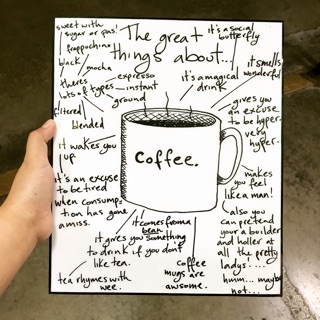 The great
things about...
sweet with
sugar or pas!
frappuchino
black
mocha
theres
lots of types
expresso
instant
ground
filtered
blended
it wakes you
up
it's an excuse
to be tired
when consump-
tion has gone
amiss.
it's a social
butterfly
it smells
wonderful
it's a magical
drink
gives you
an excuse
to be hyper-
very
hyper.
Coffee.
makes
you feel
like a man!
also you
can pretend
your a builder
and holler at
all the pretty
ladys....
hmm... maybe
not...
it comes from a
bean
it gives you something
to drink if you don't
like tea.
tea rhymes with
wee.
coffee
mugs are
awsome.